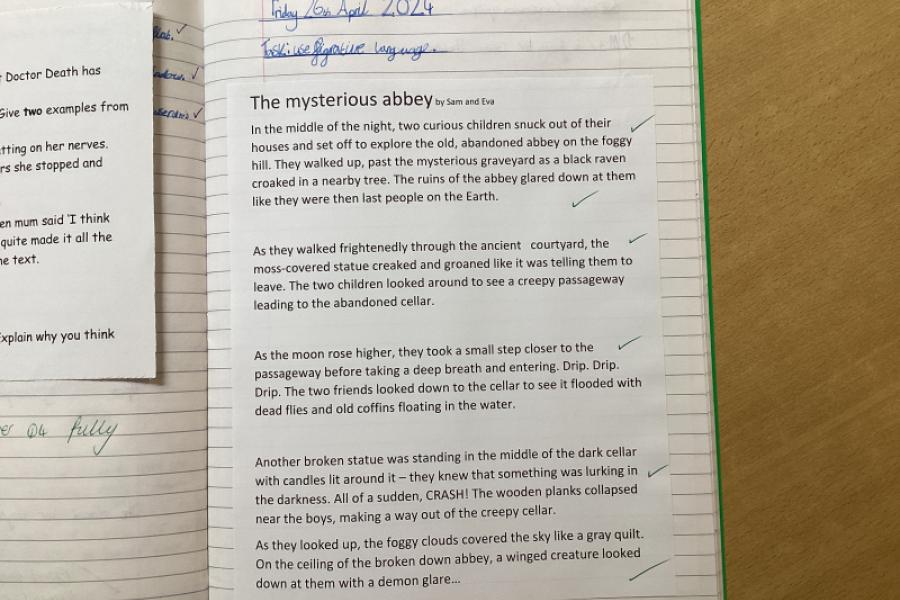 Doctor Death has
Give two examples from
tting on her nerves.
rs she stopped and
en mum said 'I think
quite made it all the
he text.
Explain why you think
Q4 fully
Friday 26th April 2024
Task: use figrative language.
The mysterious abbey by Sam and Eva
In the middle of the night, two curious children snuck out of their
houses and set off to explore the old, abandoned abbey on the foggy
hill. They walked up, past the mysterious graveyard as a black raven
croaked in a nearby tree. The ruins of the abbey glared down at them
like they were then last people on the Earth.
As they walked frightenedly through the ancient courtyard, the
moss-covered statue creaked and groaned like it was telling them to
leave. The two children looked around to see a creepy passageway
leading to the abandoned cellar.
As the moon rose higher, they took a small step closer to the
passageway before taking a deep breath and entering. Drip. Drip.
Drip. The two friends looked down to the cellar to see it flooded with
dead flies and old coffins floating in the water.
Another broken statue was standing in the middle of the dark cellar
with candles lit around it – they knew that something was lurking in
the darkness. All of a sudden, CRASH! The wooden planks collapsed
near the boys, making a way out of the creepy cellar.
As they looked up, the foggy clouds covered the sky like a gray quilt.
On the ceiling of the broken down abbey, a winged creature looked
down at them with a demon glare…